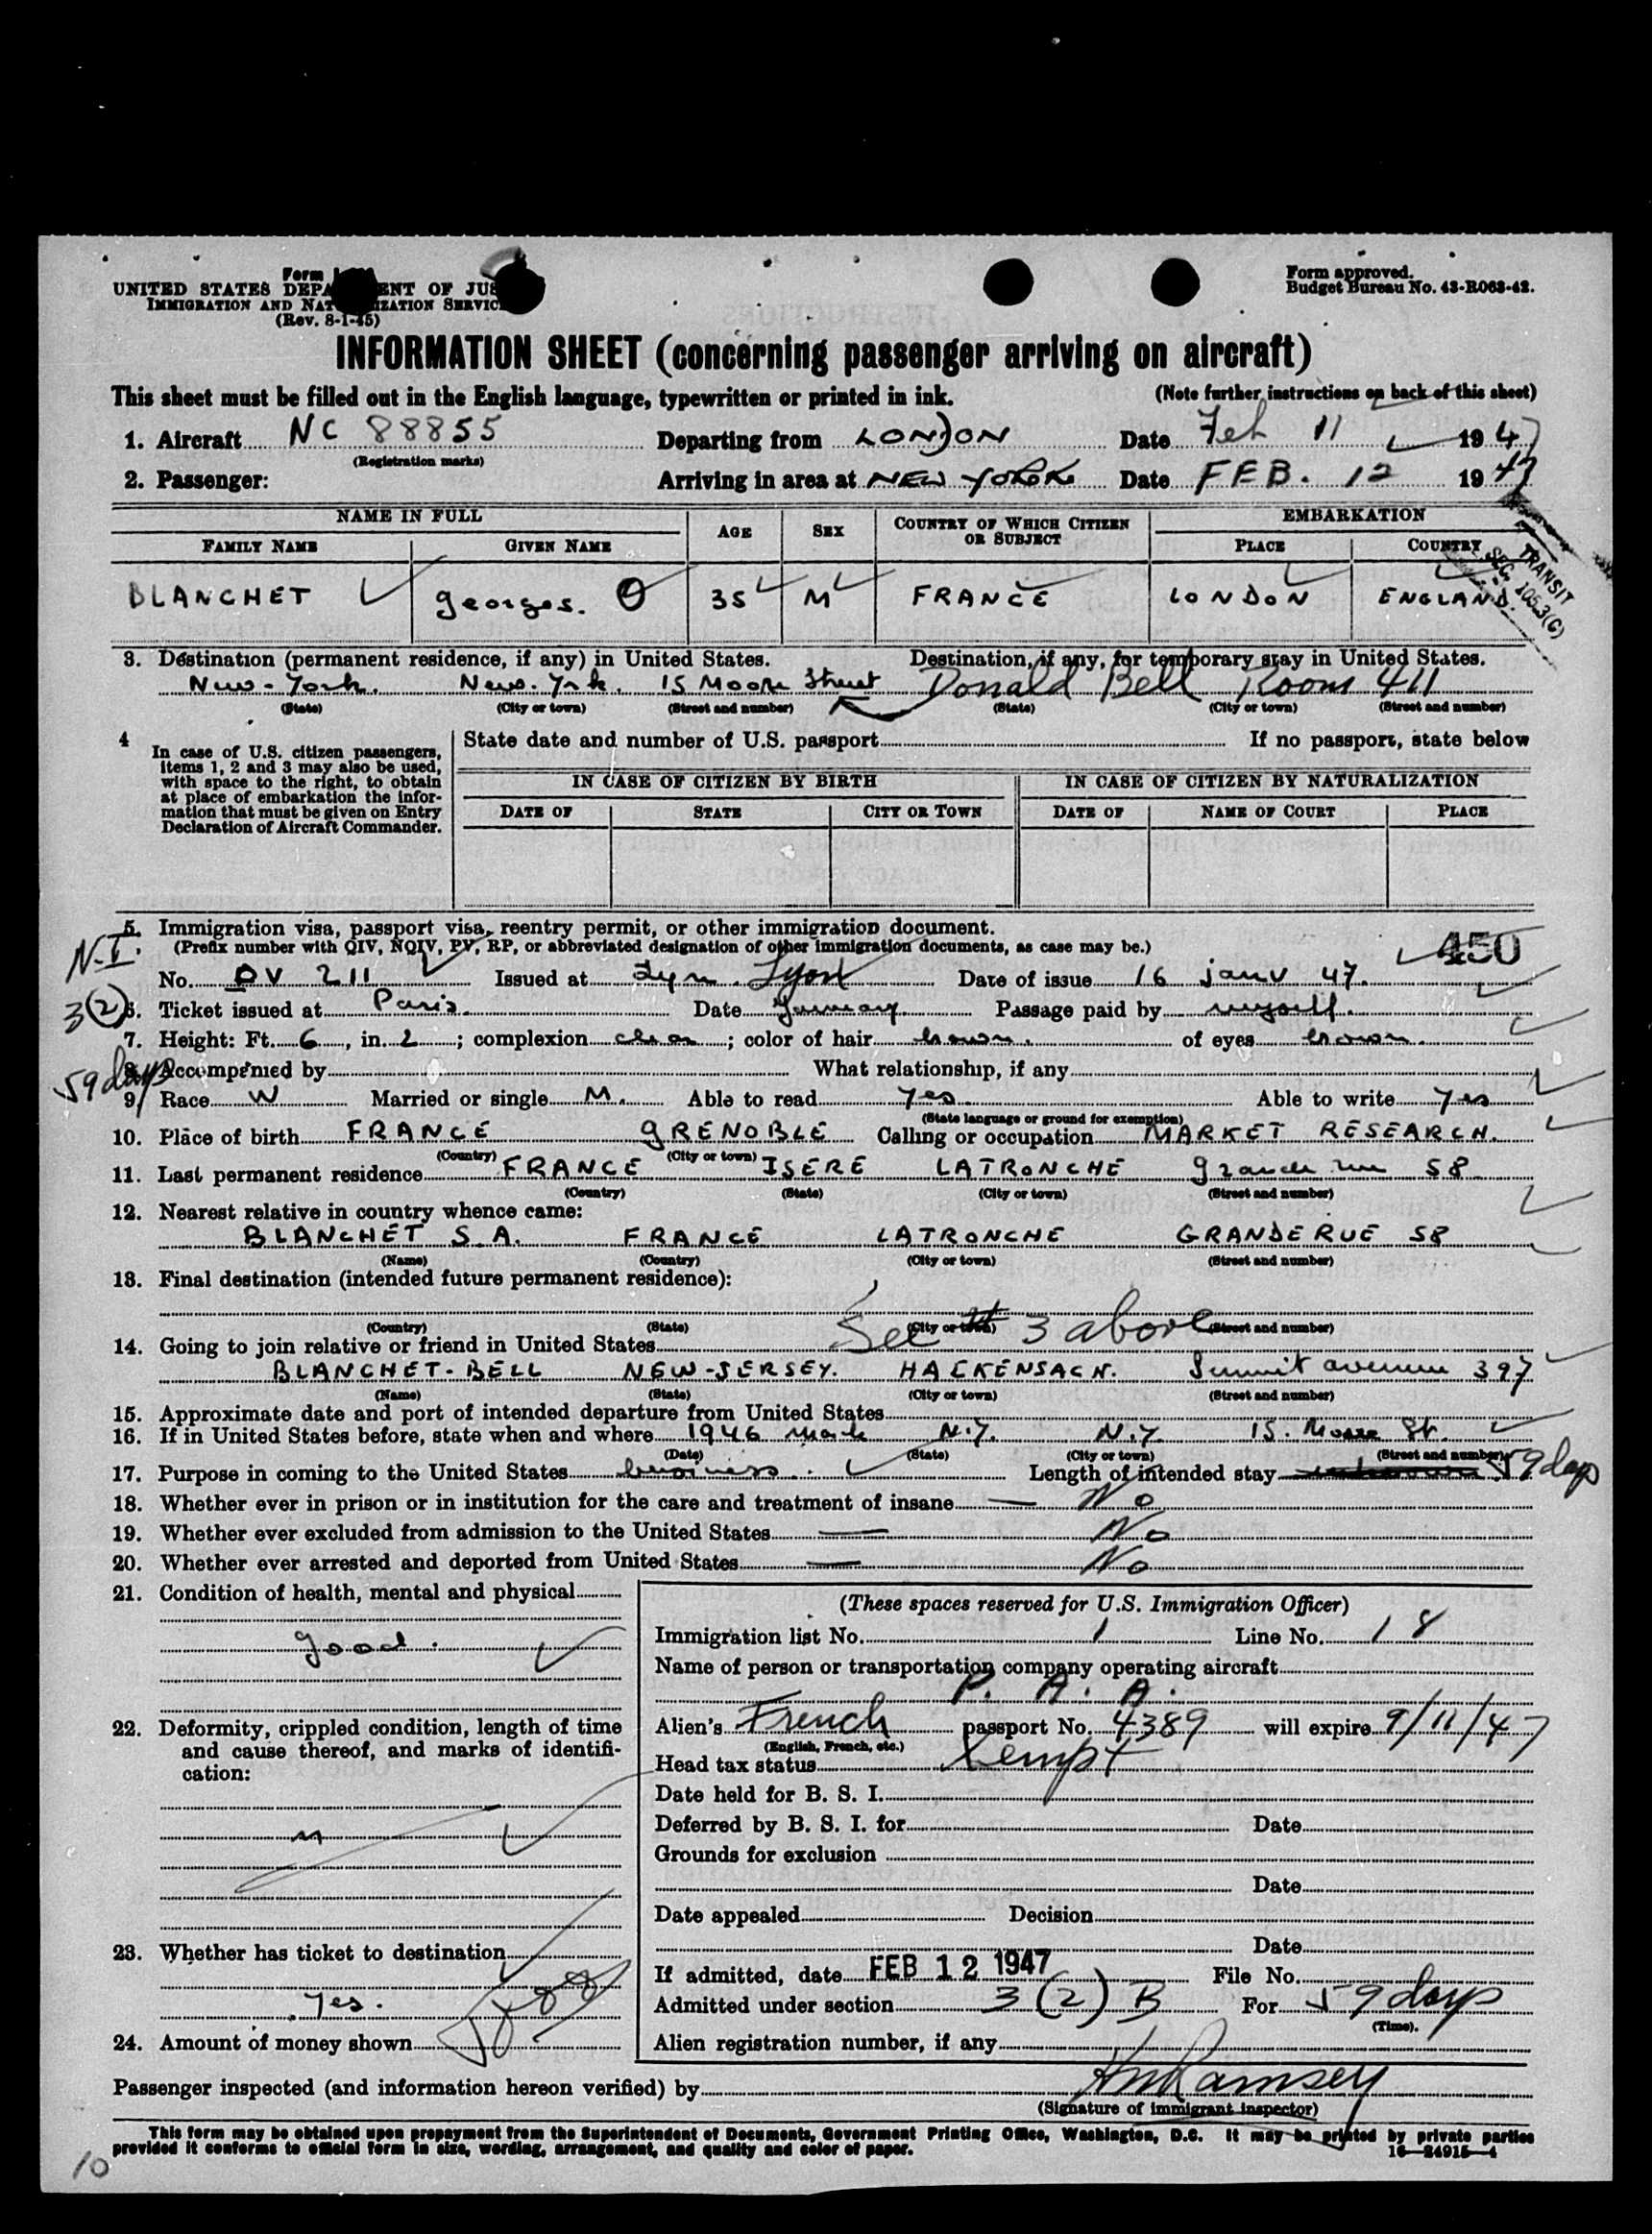 Form
UNITED STATES DEPA ENT OF JUS
IMMIGRATION AND NAT IZATION SERVIC
(Rev. 8-1-45)
Form approved.
Budget Bureau No. 43-R063-42.
INFORMATION SHEET (concerning passenger arriving on aircraft)
This sheet must be filled out in the English language, typewritten or printed in ink. (Note further instructions on back of this sheet)
1. Aircraft NC 88855 Departing from LONDON Date Feb 11 1947
(Registration marks)
2. Passenger: Arriving in area at NEW YORK Date FEB. 12 1947
NAME IN FULL AGE SEX COUNTRY OF WHICH CITIZEN OR SUBJECT EMBARKATION
FAMILY NAME GIVEN NAME PLACE COUNTRY
TRANSIT
SEC. 105.3(C)
BLANCHET georges. 35 M FRANCE LONDON ENGLAND.
3. Destination (permanent residence, if any) in United States. Destination, if any, for temporary stay in United States.
New-York. New-York. 15 Moore Street Donald Bell Room 411
(State) (City or town) (Street and number) (State) (City or town) (Street and number)
4 In case of U.S. citizen passengers, items 1, 2 and 3 may also be used, with space to the right, to obtain at place of embarkation the information that must be given on Entry Declaration of Aircraft Commander.
State date and number of U.S. passport If no passport, state below
IN CASE OF CITIZEN BY BIRTH IN CASE OF CITIZEN BY NATURALIZATION
DATE OF STATE CITY OR TOWN DATE OF NAME OF COURT PLACE
5. Immigration visa, passport visa, reentry permit, or other immigration document.
N.I. (Prefix number with QIV, NQIV, PV, RP, or abbreviated designation of other immigration documents, as case may be.) 450
No. PV 211 Issued at Lyon Date of issue 16 janv 47.
3(2) 6. Ticket issued at Paris. Date January Passage paid by myself.
7. Height: Ft. 6, in. 2; complexion clear; color of hair brown. of eyes brown.
59 days 8. Accompanied by What relationship, if any
9. Race W Married or single M. Able to read Yes. Able to write Yes
(State language or ground for exemption)
10. Place of birth FRANCE GRENOBLE Calling or occupation MARKET RESEARCH.
(Country) (City or town)
11. Last permanent residence FRANCE ISERE LATRONCHE grande rue 58
(Country) (State) (City or town) (Street and number)
12. Nearest relative in country whence came:
BLANCHET S.A. FRANCE LATRONCHE GRANDE RUE 58
(Name) (Country) (City or town) (Street and number)
13. Final destination (intended future permanent residence):
(Country) (State) (City or town) (Street and number)
See 3 above
14. Going to join relative or friend in United States
BLANCHET-BELL NEW-JERSEY. HACKENSACK. Summit avenue 397
(Name) (State) (City or town) (Street and number)
15. Approximate date and port of intended departure from United States
16. If in United States before, state when and where 1946 N.Y. N.Y. 15. Moore St.
(Date) (State) (City or town) (Street and number)
17. Purpose in coming to the United States business. Length of intended stay 59 days
18. Whether ever in prison or in institution for the care and treatment of insane — No
19. Whether ever excluded from admission to the United States — No
20. Whether ever arrested and deported from United States — No
21. Condition of health, mental and physical
good.
22. Deformity, crippled condition, length of time and cause thereof, and marks of identification:
23. Whether has ticket to destination
Yes.
24. Amount of money shown
(These spaces reserved for U.S. Immigration Officer)
Immigration list No. 1 Line No. 18
Name of person or transportation company operating aircraft
P. A. A.
Alien's French passport No. 4389 will expire 9/11/47
(English, French, etc.)
Head tax status Exempt
Date held for B. S. I.
Deferred by B. S. I. for Date
Grounds for exclusion
Date
Date appealed Decision
Date
If admitted, date FEB 12 1947 File No.
Admitted under section 3(2) B For 59 days
(Time).
Alien registration number, if any
Passenger inspected (and information hereon verified) by Ramsey
(Signature of immigrant inspector)
This form may be obtained upon prepayment from the Superintendent of Documents, Government Printing Office, Washington, D.C. It may be printed by private parties
provided it conforms to official form in size, wording, arrangement, and quality and color of paper. 16—24915-4
10